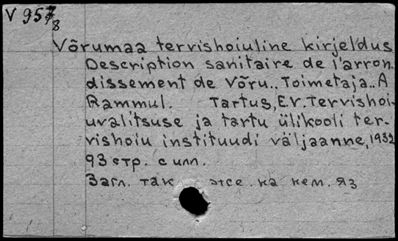 V 957/8
Võrumaa tervishoiuline kirjeldus
Description sanitaire de l'arron
dissement de Võru.. Toimetaja.. A
Rammul. Tartus, E.V. Tervishoi-
uvalitsuse ja tartu ülikooli ter-
vishoiu instituudi väljaanne, 1932
93 стр. с илл.
Загл. так же на нем. яз